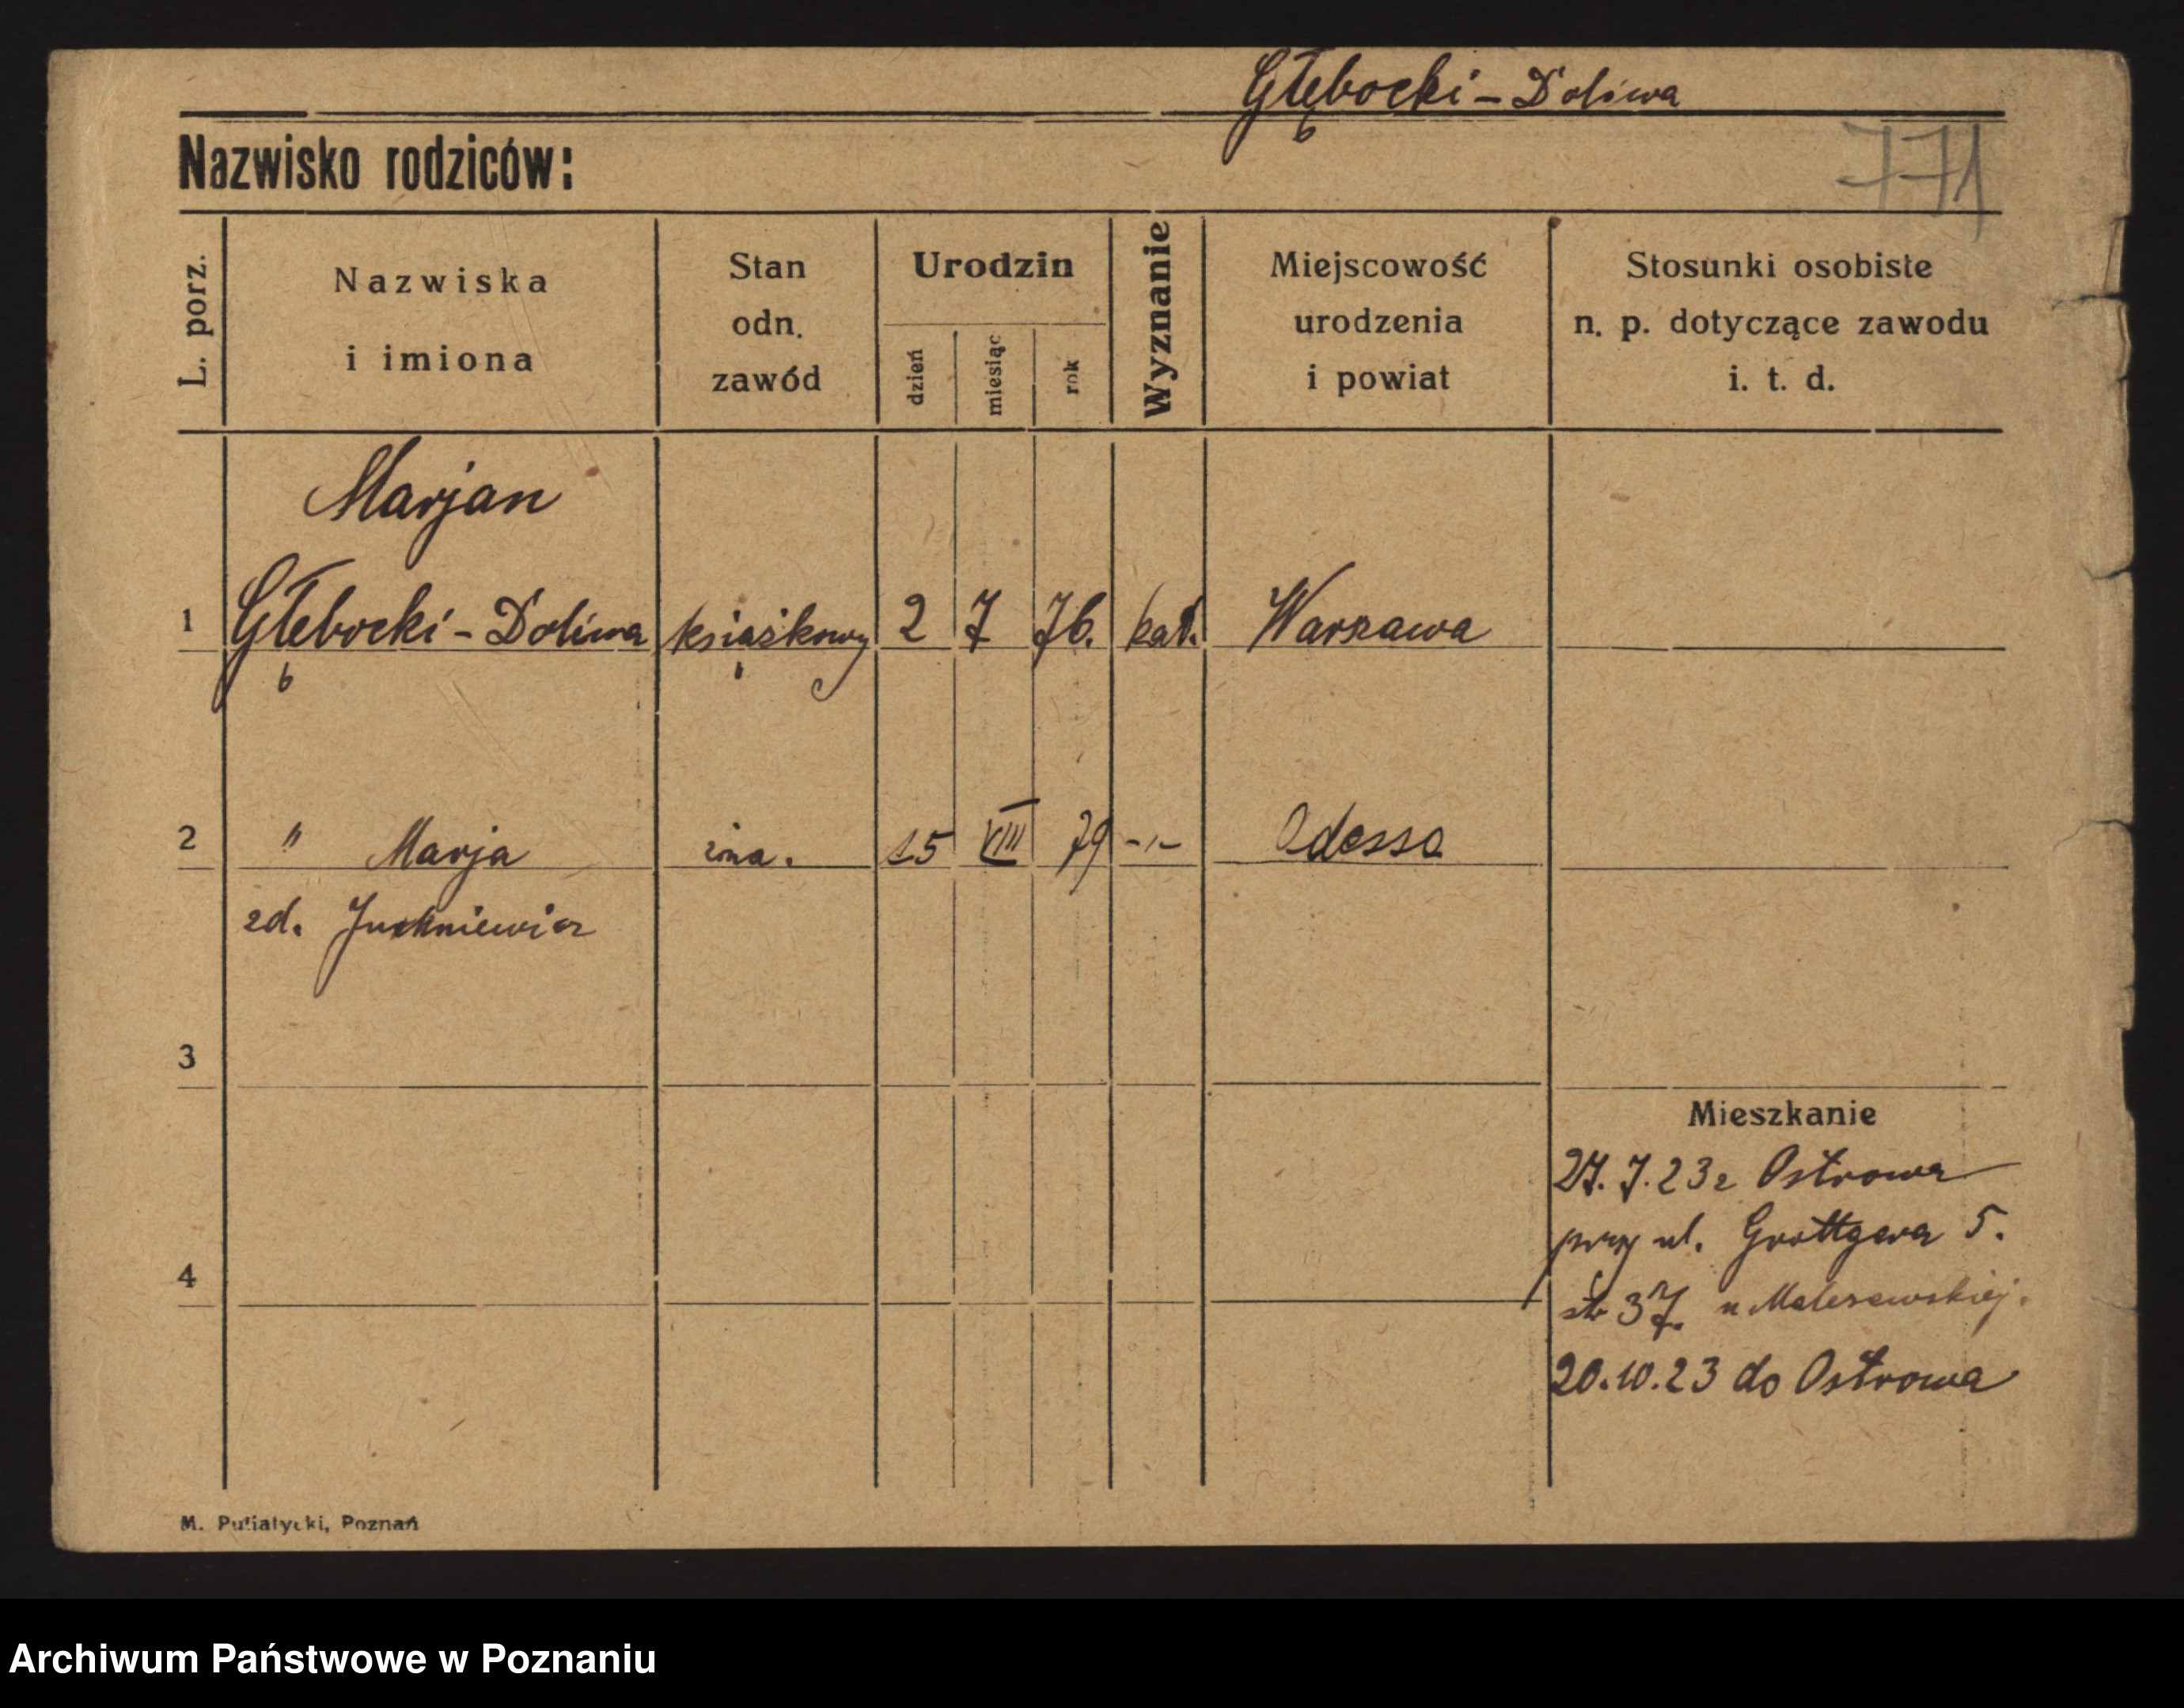 Głębocki - Doliwa
Nazwisko rodziców:
771
L. porz.
Nazwiska
i imiona
Stan
odn.
zawód
Urodzin
dzień
miesiąc
rok
Wyznanie
Miejscowość
urodzenia
i powiat
Stosunki osobiste
n. p. dotyczące zawodu
i. t. d.
Marjan
1 Głębocki - Doliwa książkowy 2 7 76. kat. Warszawa
2 " Marja żona. 15 VIII 79 -"- Odessa
zd. Juchniewicz
3
Mieszkanie
27.7.23 z Ostrowa
przy ul. Grottgera 5.
4
str 37. u Malczewskiej.
20.10.23 do Ostrowa
M. Putiatycki, Poznań
Archiwum Państwowe w Poznaniu